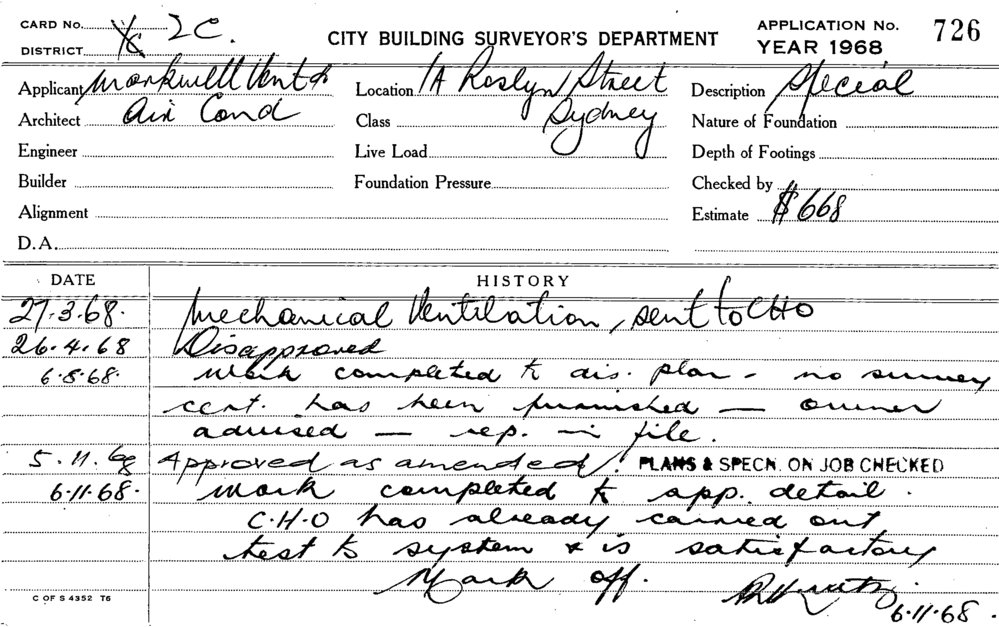 CARD No. 2C.
DISTRICT
CITY BUILDING SURVEYOR'S DEPARTMENT
APPLICATION No. 726
YEAR 1968
Applicant Markwell Vent &
Location 1A Roslyn Street
Description Special
Architect Air Cond
Class Sydney
Nature of Foundation
Engineer
Live Load
Depth of Footings
Builder
Foundation Pressure
Checked by
Alignment
Estimate $668
D.A.
DATE HISTORY
27.3.68. Mechanical Ventilation, sent to CHO
26.4.68 Disapproved
6.8.68. Work completed to dis. plan - no survey
cert. has been furnished — owner
advised — rep. in file.
5.11.68 Approved as amended. PLANS & SPECN. ON JOB CHECKED
6.11.68. Work completed to app. detail.
C.H.O has already carried out
test to system & is satisfactory
Mark off.
6.11.68.
C OF S 4352 T6